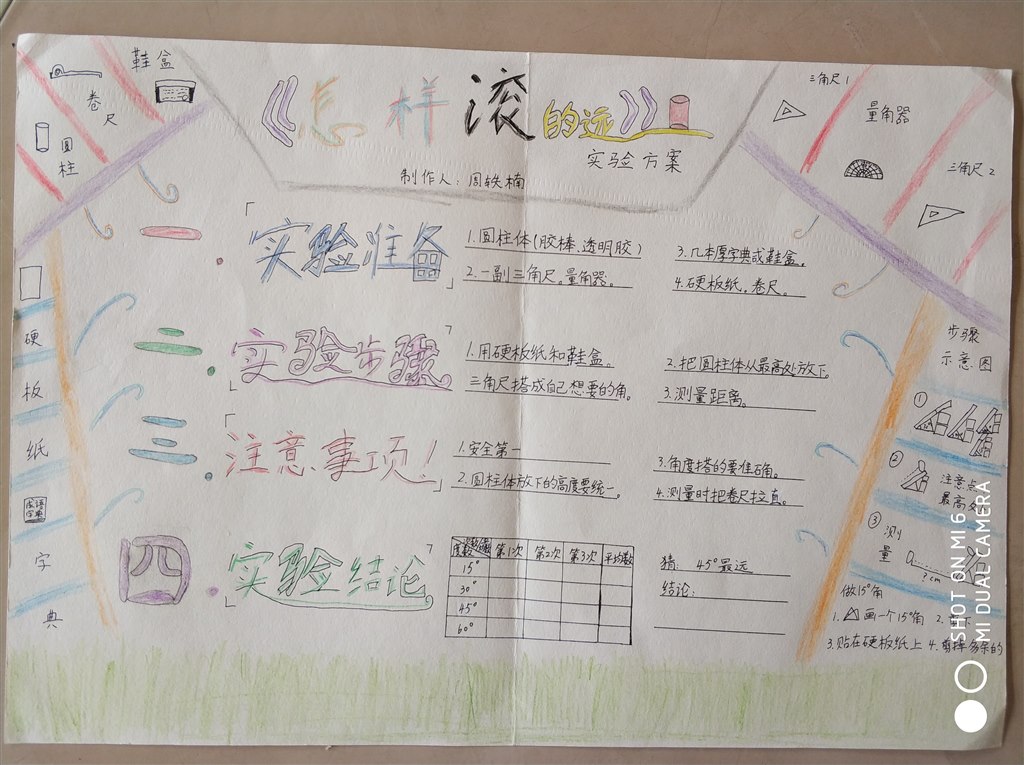 鞋盒
卷尺
圆柱
《怎样滚的远》
实验方案
制作人：周轶楠
三角尺1
量角器
三角尺2
一.「实验准备」
1.圆柱体(胶棒、透明胶)
2.一副三角尺。量角器。
3.几本厚字典或鞋盒。
4.硬板纸，卷尺。
二.「实验步骤」
1.用硬板纸和鞋盒。
三角尺搭成自己想要的角。
2.把圆柱体从最高处放下。
3.测量距离。
三.「注意事项！」
1.安全第一
2.圆柱体放下的高度要统一。
3.角度搭的要准确。
4.测量时把卷尺拉直。
四.「实验结论」
度数 第1次 第2次 第3次 平均数
15°
30°
45°
60°
猜：45°最远
结论：
硬板纸
成语字典
字典
步骤
示意图
①
②
注意点
最高处
③测量
?cm
做15°角
1.画一个15°角 2.
3.贴在硬板纸上 4.剪掉多余的
SHOT ON MI 6
MI DUAL CAMERA